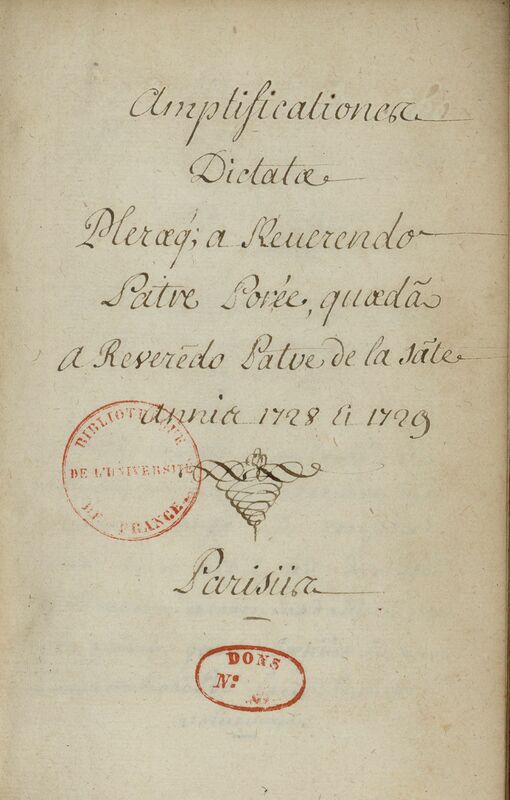 Amplificationes
Dictatæ
Pleræq; a Reuerendo
Patre Porée, quædã
a Reverẽdo Patre de la Sãte
annis 1728 & 1729
BIBLIOTHEQUE
DE L'UNIVERSITÉ
DE FRANCE
Parisiis
DONS
Nº: